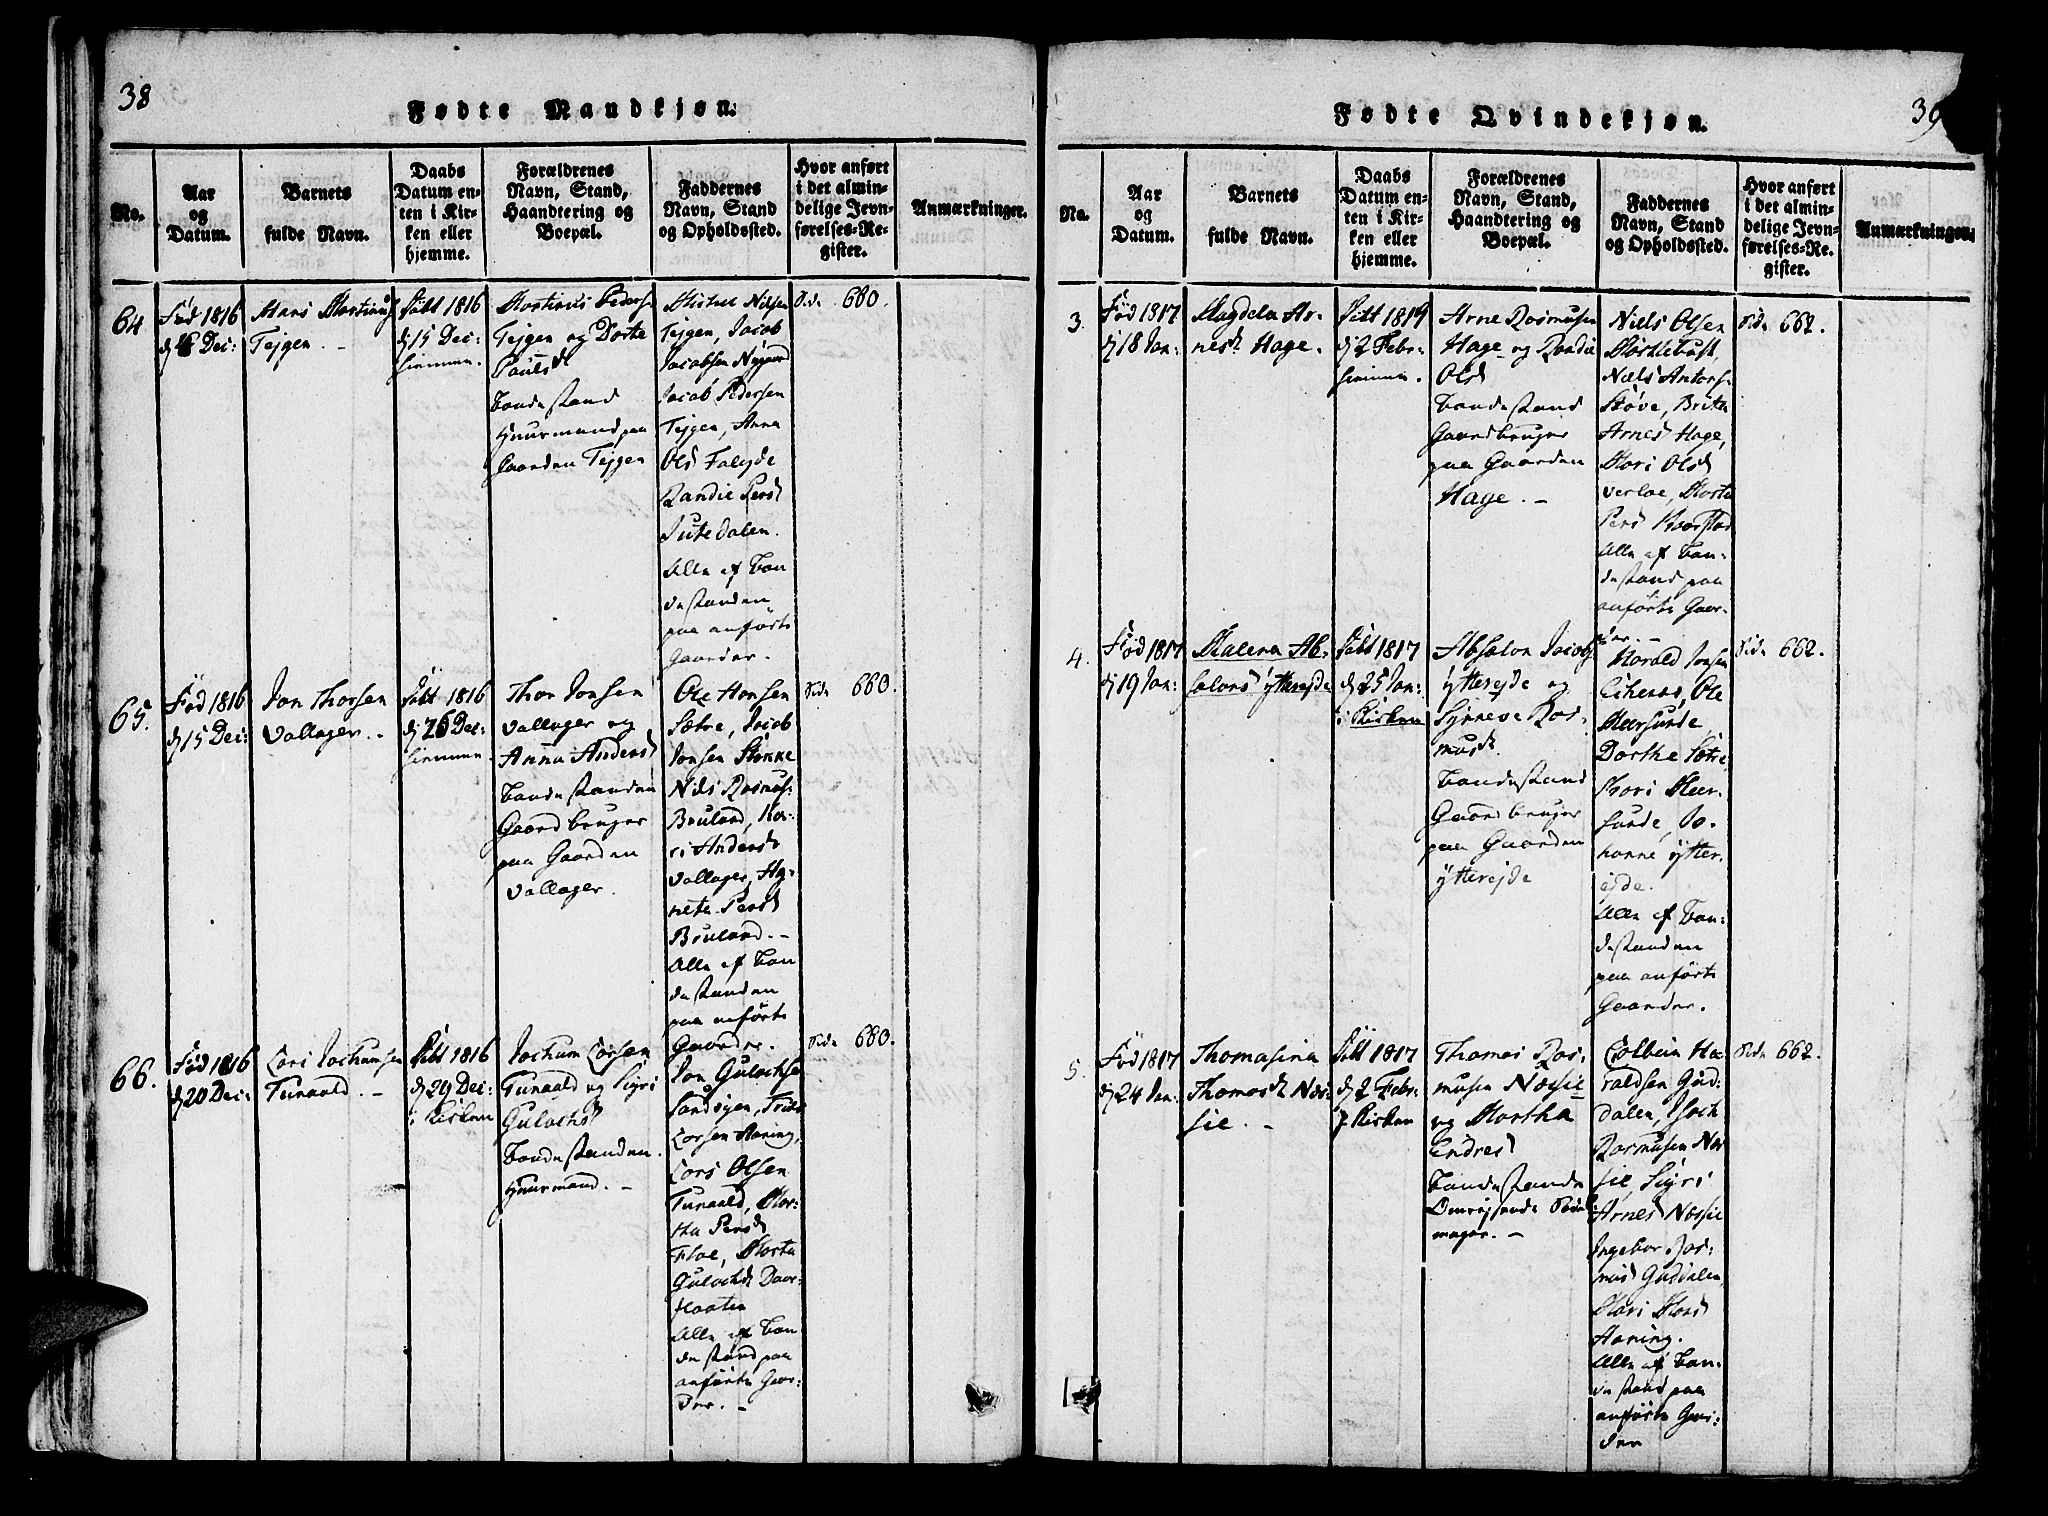 38
Fødte Mandkjøn.
No.
Aar
og
Datum.
Barnets
fulde Navn.
Daabs
Datum en-
ten i Kir-
ken eller
hjemme.
Forældrenes
Navn, Stand,
Haandtering og
Boepæl.
Faddernes
Navn, Stand
og Opholdssted.
Hvor anført
i det almin-
delige Jevn-
førelses-Re-
gister.
Anmærkninger.
64
Fød 1816
d. Dec:
Hans
Tejgen. -
Døbt 1816
d 15 Dec:
hiemme.
Mortinus Peders:
Tejgen og Dorte
Paulsd
Bondestand
Huusmand paa
Gaarden Tejgen
Michel Nielsen
Tejgen, Jacob
Jacobsen Nygaard
Jacob Pedersen
Tejgen, Anna
Olsd Faleyde
Randie Persd
Jutedalen.
Alle af Bon
destanden
paa anførte
Gaarder.
Side 680.
65.
Fød 1816
d 15 Dec:
Jon Thorsen
Vallager. -
Døbt 1816
d 26 Dec:
hiemme
Thor Jonsen
Vallager og
Anna Andersd
Bondestanden
Gaardbruger
paa Gaarden
Vallager.
Ole Hansen
Sætre, Jacob
Jonsen Stokke
Niels Rasmus-
Bruland, Ka-
ri Andersd
Vallager, Ag-
neta Persd
Bruland. -
Alle af Bon
destanden
paa anførte
Gaarder.
Side 680.
66.
Fød 1816
d 20 Dec:
Lars Jochumsen
Tunaald. -
Døbt 1816
d 29 Dec:
i Kirken
Jochum Larsen
Tunaald og Sigri
Gulachsd
Bondestanden.
Huusmand. -
Jon Gulachse
Sandvigen,
Larsen Aaning,
Lars Olsen
Tunaald, Mar-
tha Persd
Floe, Marta
Gulachsd
Alle af Bon
destand paa
anførte Gaar-
der. -
Side 680.
39
Fødte Qvindekjøn.
No.
Aar
og
Datum.
Barnets
fulde Navn.
Daabs
Datum en-
ten i Kir-
ken eller
hjemme.
Forældrenes
Navn, Stand,
Haandtering og
Boepæl.
Faddernes
Navn, Stand
og Opholdssted.
Hvor anført
i det almin-
delige Jevn-
førelses-Re-
gister.
Anmærkninger.
3.
Fød 1817
d 18 Jan:
Magdela Ar-
nesd. Hage.
Døbt 1817
d 2 Febr:
hiemme.
Arne Rasmusen
Hage og Randie
Olsd
Bondestand
Gaardbruger
paa Gaarden
Hage. -
Niels Olsen
Myklebust,
Niels Antons-
Støve, Brite
Arnesd Hage,
Mari Olsd
Verloe, Marte
Persd Kaarstad
Alle af Bon-
destand paa
anførte Gaar-
der. -
Side 662.
4.
Fød 1817
d 19 Jan:
Malena Ab-
salons Ytterejde
Døbt 1817
d 25 Jan:
i Kirken
Absalon Jacobs
Ytterejde og
Synneve Ras-
musd.
Bondestand
Gaardbruger
paa Gaarden
Ytterejde
Harald Jonsen
Ole
Meersunde
Dorthe Sætre
Kari Meer-
sunde, Jo-
hanne Ytter-
ejde.
Alle af Bon-
destanden
paa anførte
Gaarder.
Side 662.
5.
Fød 1817
d 24 Jan:
Thomasina
Thomasd. Nos-
sie. -
Døbt 1817
d 2 Febr:
i Kirken
Thomas Ras-
musen Nossie
og Martha
Endresd
Bondestand
Omrejsende
mager. -
Colbein Ha-
raldsen Gud-
dalen, Isach
Rasmusen Nos-
sie, Sigri
Arnesd Nossie
Ingebor Ras-
musd Guddalen,
Mari
Aaning.
Alle af Bon-
destand paa
anførte Gaar-
der
Side 662.